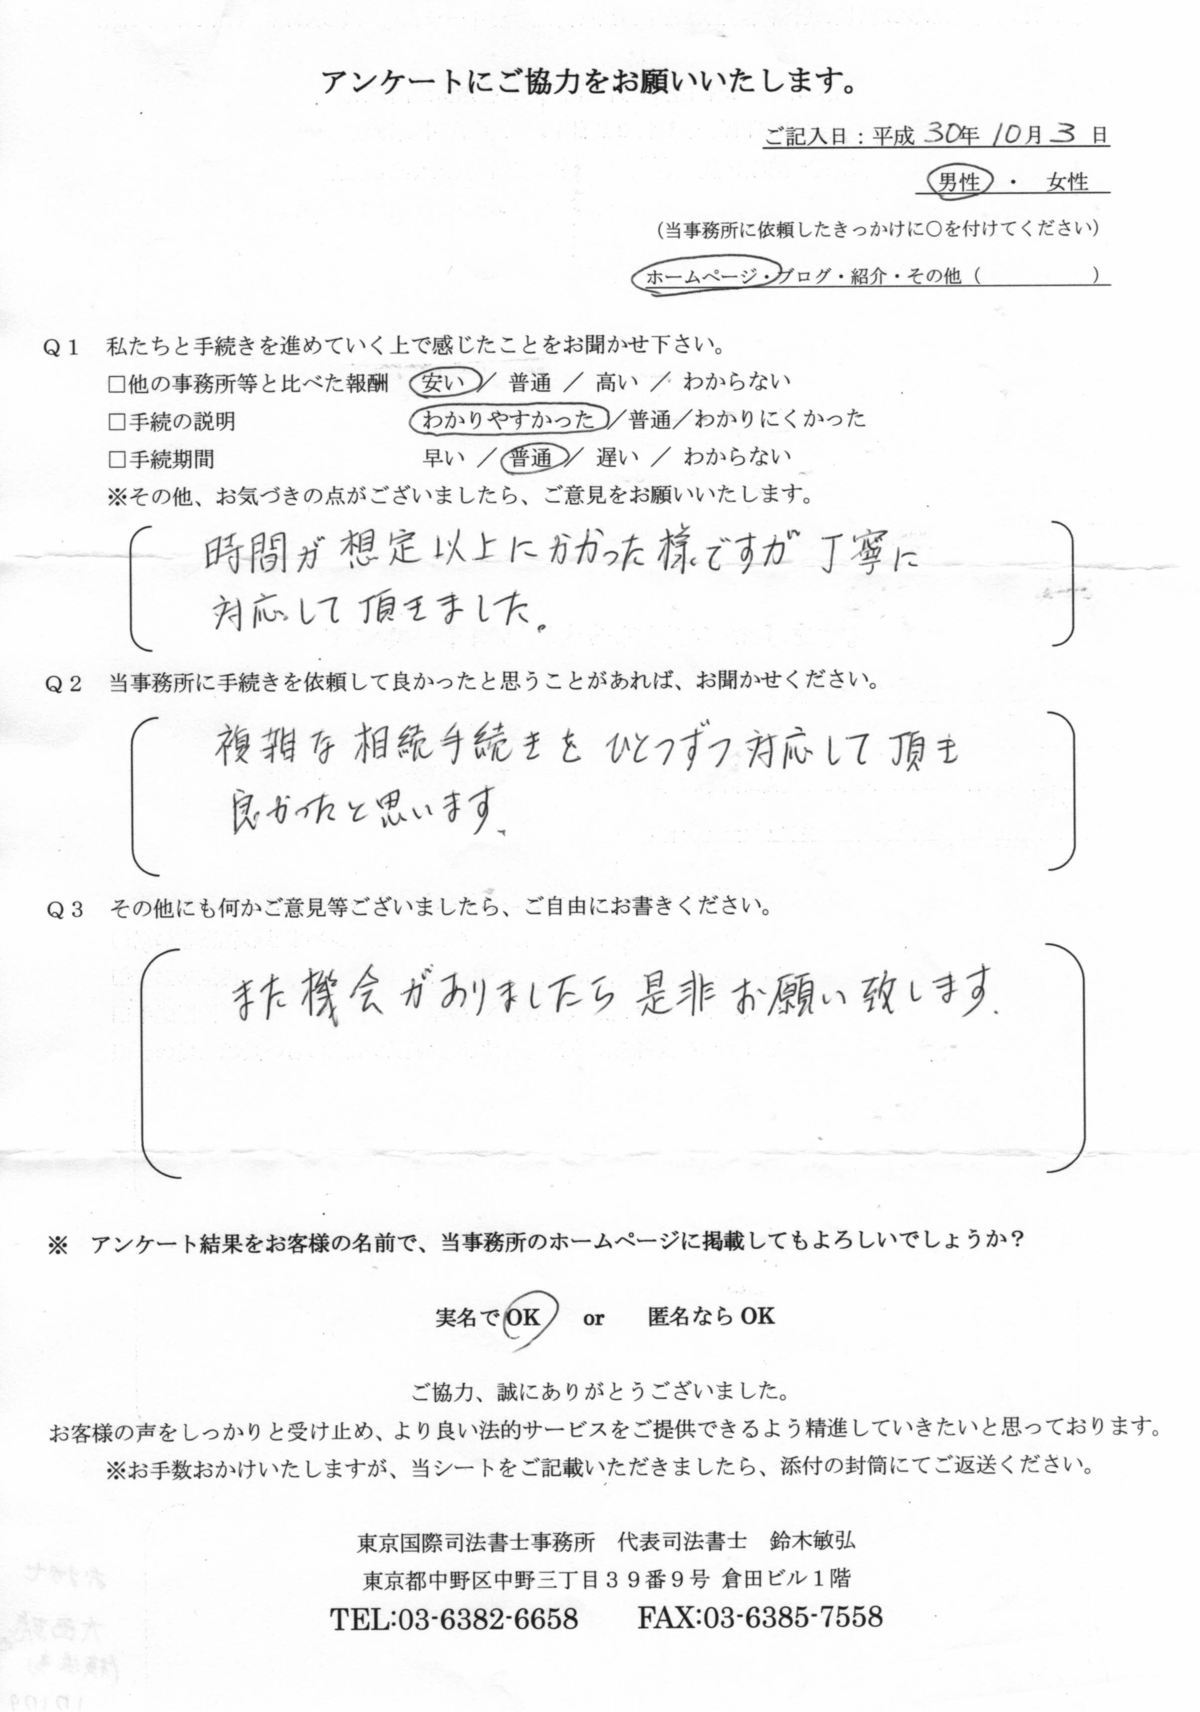 アンケートにご協力をお願いいたします。
ご記入日：平成 30年 10月 3 日
男性 ・ 女性
（当事務所に依頼したきっかけに○を付けてください）
ホームページ・ブログ・紹介・その他（ ）
Ｑ１ 私たちと手続きを進めていく上で感じたことをお聞かせ下さい。
□他の事務所等と比べた報酬 安い ／ 普通 ／ 高い ／ わからない
□手続の説明 わかりやすかった ／普通／わかりにくかった
□手続期間 早い ／ 普通 ／ 遅い ／ わからない
※その他、お気づきの点がございましたら、ご意見をお願いいたします。
時間が想定以上にかかった様ですが丁寧に
対応して頂きました。
Ｑ２ 当事務所に手続きを依頼して良かったと思うことがあれば、お聞かせください。
複雑な相続手続きを ひとつずつ対応して頂き
良かったと思います。
Ｑ３ その他にも何かご意見等ございましたら、ご自由にお書きください。
また機会がありましたら是非お願い致します。
※ アンケート結果をお客様の名前で、当事務所のホームページに掲載してもよろしいでしょうか？
実名で OK or 匿名なら OK
ご協力、誠にありがとうございました。
お客様の声をしっかりと受け止め、より良い法的サービスをご提供できるよう精進していきたいと思っております。
※お手数おかけいたしますが、当シートをご記載いただきましたら、添付の封筒にてご返送ください。
東京国際司法書士事務所 代表司法書士 鈴木敏弘
東京都中野区中野三丁目３９番９号 倉田ビル１階
TEL:03-6382-6658 FAX:03-6385-7558